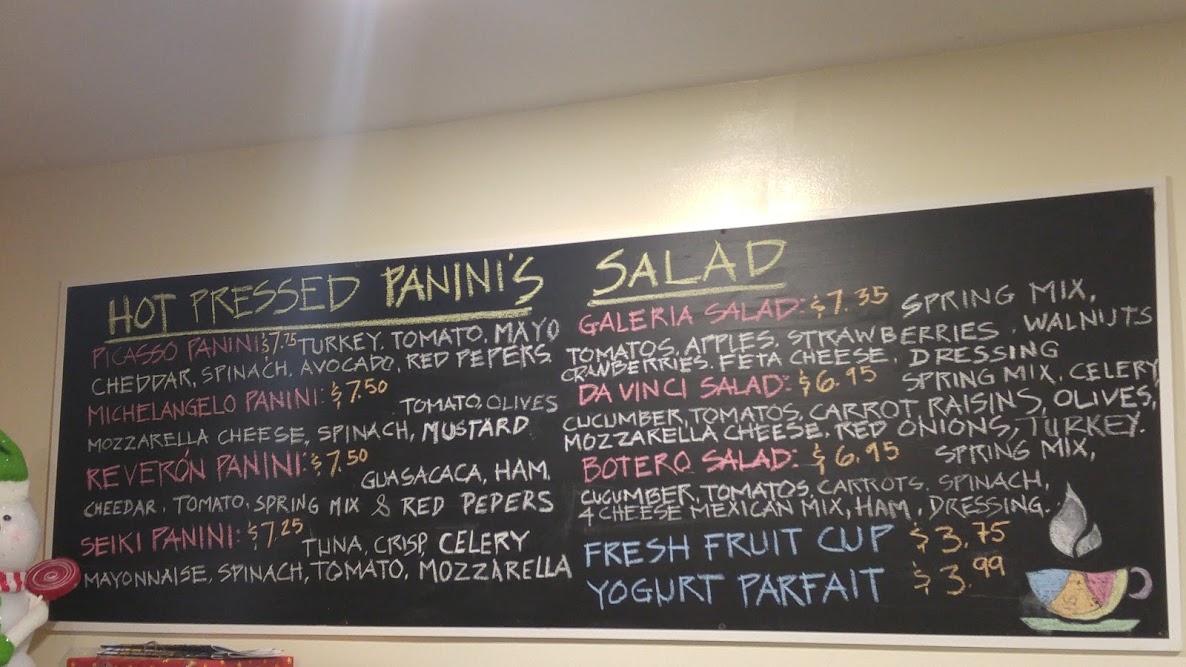 HOT PRESSED PANINI'S
PICASSO PANINI: $7.75 TURKEY, TOMATO, MAYO
CHEDDAR, SPINACH, AVOCADO, RED PEPERS.
MICHELANGELO PANINI: $7.50 TOMATO, OLIVES
MOZZARELLA CHEESE, SPINACH, MUSTARD
REVERÓN PANINI: $7.50 GUASACACA, HAM,
CHEEDAR, TOMATO, SPRING MIX & RED PEPERS
SEIKI PANINI: $7.25 TUNA, CRISP, CELERY
MAYONNAISE, SPINACH, TOMATO, MOZZARELLA
SALAD
GALERIA SALAD: $7.35 SPRING MIX,
TOMATOS, APPLES, STRAWBERRIES, WALNUTS
CRANBERRIES, FETA CHEESE, DRESSING
DA VINCI SALAD: $6.95 SPRING MIX, CELERY,
CUCUMBER, TOMATOS, CARROT, RAISINS, OLIVES,
MOZZARELLA CHEESE, RED ONIONS, TURKEY.
BOTERO SALAD: $6.95 SPRING MIX,
CUCUMBER, TOMATOS, CARROTS, SPINACH,
4 CHEESE MEXICAN MIX, HAM, DRESSING.
FRESH FRUIT CUP $3.75
YOGURT PARFAIT $3.99